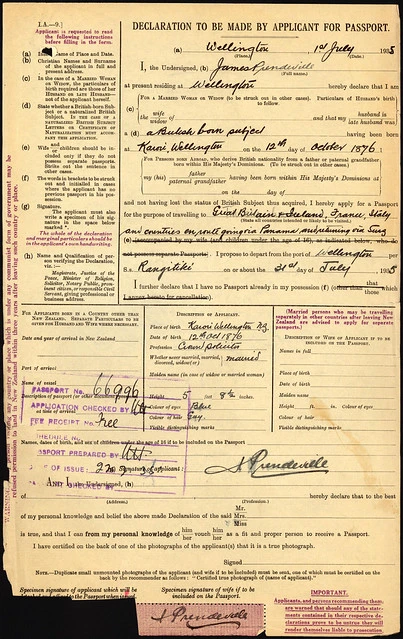 I.A.—9.]
DECLARATION TO BE MADE BY APPLICANT FOR PASSPORT.
Applicant is requested to read the following instructions before filling in the form.
(a) Name of Place and Date.
(b) Christian Names and Surname of the applicant in full and present address.
(c) In the case of a MARRIED WOMAN or WIDOW, the particulars required are those of her HUSBAND or LATE HUSBAND—not of the applicant herself.
(d) State whether a British born Subject or a naturalized British Subject. IN THE CASE OF A NATURALIZED BRITISH SUBJECT LETTERS OR CERTIFICATE OF NATURALIZATION MUST ACCOMPANY THIS APPLICATION.
(e) Wife or children should be included only if they do not possess separate passports. Strike out the words if not included.
(f) The words in brackets to be struck out and initialled in cases where the applicant has no previous passport in his possession.
(g) Signature.
The applicant must also write a specimen of his signature in the space below marked *.
The whole of the declaration and marginal particulars should be in the applicant's own handwriting.
(h) Name and Qualification of person verifying the Declaration, viz.:—
Magistrate, Justice of the Peace, Minister of Religion, Solicitor, Notary Public, prominent citizen, or responsible Civil Servant, giving professional or business address.
(a) Wellington 1st July 1935
(Place.) (Date.)
I, the Undersigned, (b) James Prendeville
(Full name.)
at present residing at Wellington hereby declare that I am
[FOR A MARRIED WOMAN OR WIDOW (to be struck out in other cases). PARTICULARS OF HUSBAND'S BIRTH to follow
(c) the wife widow of and that my husband is late husband was
(d) a British born subject having been born
Karori, Wellington on the 12th day of October 1876;
[FOR PERSONS BORN ABROAD, who derive British nationality from a father or paternal grandfather born within His Majesty's Dominions. (To be struck out in other cases).
my (his) father paternal grandfather having been born within His Majesty's Dominions at
on the day of
and not having lost the status of British Subject thus acquired, I hereby apply for a Passport
for the purpose of travelling to Great Britain & Ireland, France, Italy
(State all countries intended to be visited).
and countries en route going via Panama and returning via Suez
(e) (accompanied by my wife (and children under the age of 16), as indicated below, who do not possess separate Passports). I propose to depart from the port of Wellington per
S.s. Rangitiki on or about the 31st day of July 1935
I further declare that I have no Passport already in my possession (f) (other than that those
I annex hereto for cancellation).
FOR APPLICANTS BORN IN A COUNTRY OTHER THAN NEW ZEALAND. SEPARATE PARTICULARS TO BE GIVEN FOR HUSBAND AND WIFE WHERE NECESSARY.
Date and year of arrival in New Zealand
Port of arrival
Name of vessel
DESCRIPTION OF APPLICANT.
Place of birth Karori Wellington N.Z.
Date of birth 12th Oct 1876
Profession Crown Solicitor
Whether never married, married, divorced, widow(er) married
Maiden name (in case of widow or married woman)
Height 5 feet 8½ inches.
Colour of eyes Blue
Colour of hair Gray.
Visible distinguishing marks
(Married persons who may be travelling separately in other countries after leaving New Zealand are advised to apply for separate passports.)
DESCRIPTION OF WIFE OF APPLICANT TO BE INCLUDED ON PASSPORT.
Name in full
Place of birth
Date of birth
Maiden name
Height ft. in. Colour of hair
Colour of eyes
Visible distinguishing marks
PASSPORT No. 66996
APPLICATION CHECKED BY
FEE RECEIPT No. Free
PASSPORT PREPARED BY
OF ISSUE: 2
CHECKED BY
Names, dates of birth, and sex of children under the age of 16 to be included on the Passport
Signature of applicant:
J. Prendeville
AND I, the Undersigned, (h)
of hereby declare that to the best
(Address.) (Profession.)
of my personal knowledge and belief the above made Declaration of the said Mr. Mrs. Miss
is true, and that I can from my personal knowledge of him her vouch him her as a fit and proper person to receive a Passport.
I have certified on the back of one of the photographs of the applicant(s) that it is a true photograph.
Signed
NOTE.—Duplicate small unmounted photographs of the applicant (and wife if to be included) must be enclosed, one of which must be certified on the back by the recommender as follows: "Certified true photograph of (name of applicant)."
Specimen signature of applicant which will be affixed to the Passport when
Specimen signature of wife if to be included on the Passport.
J. Prendeville
IMPORTANT.
Applicants, and persons recommending them, are warned that should any of the statements contained in their respective declarations prove to be untrue they will render themselves liable to prosecution.